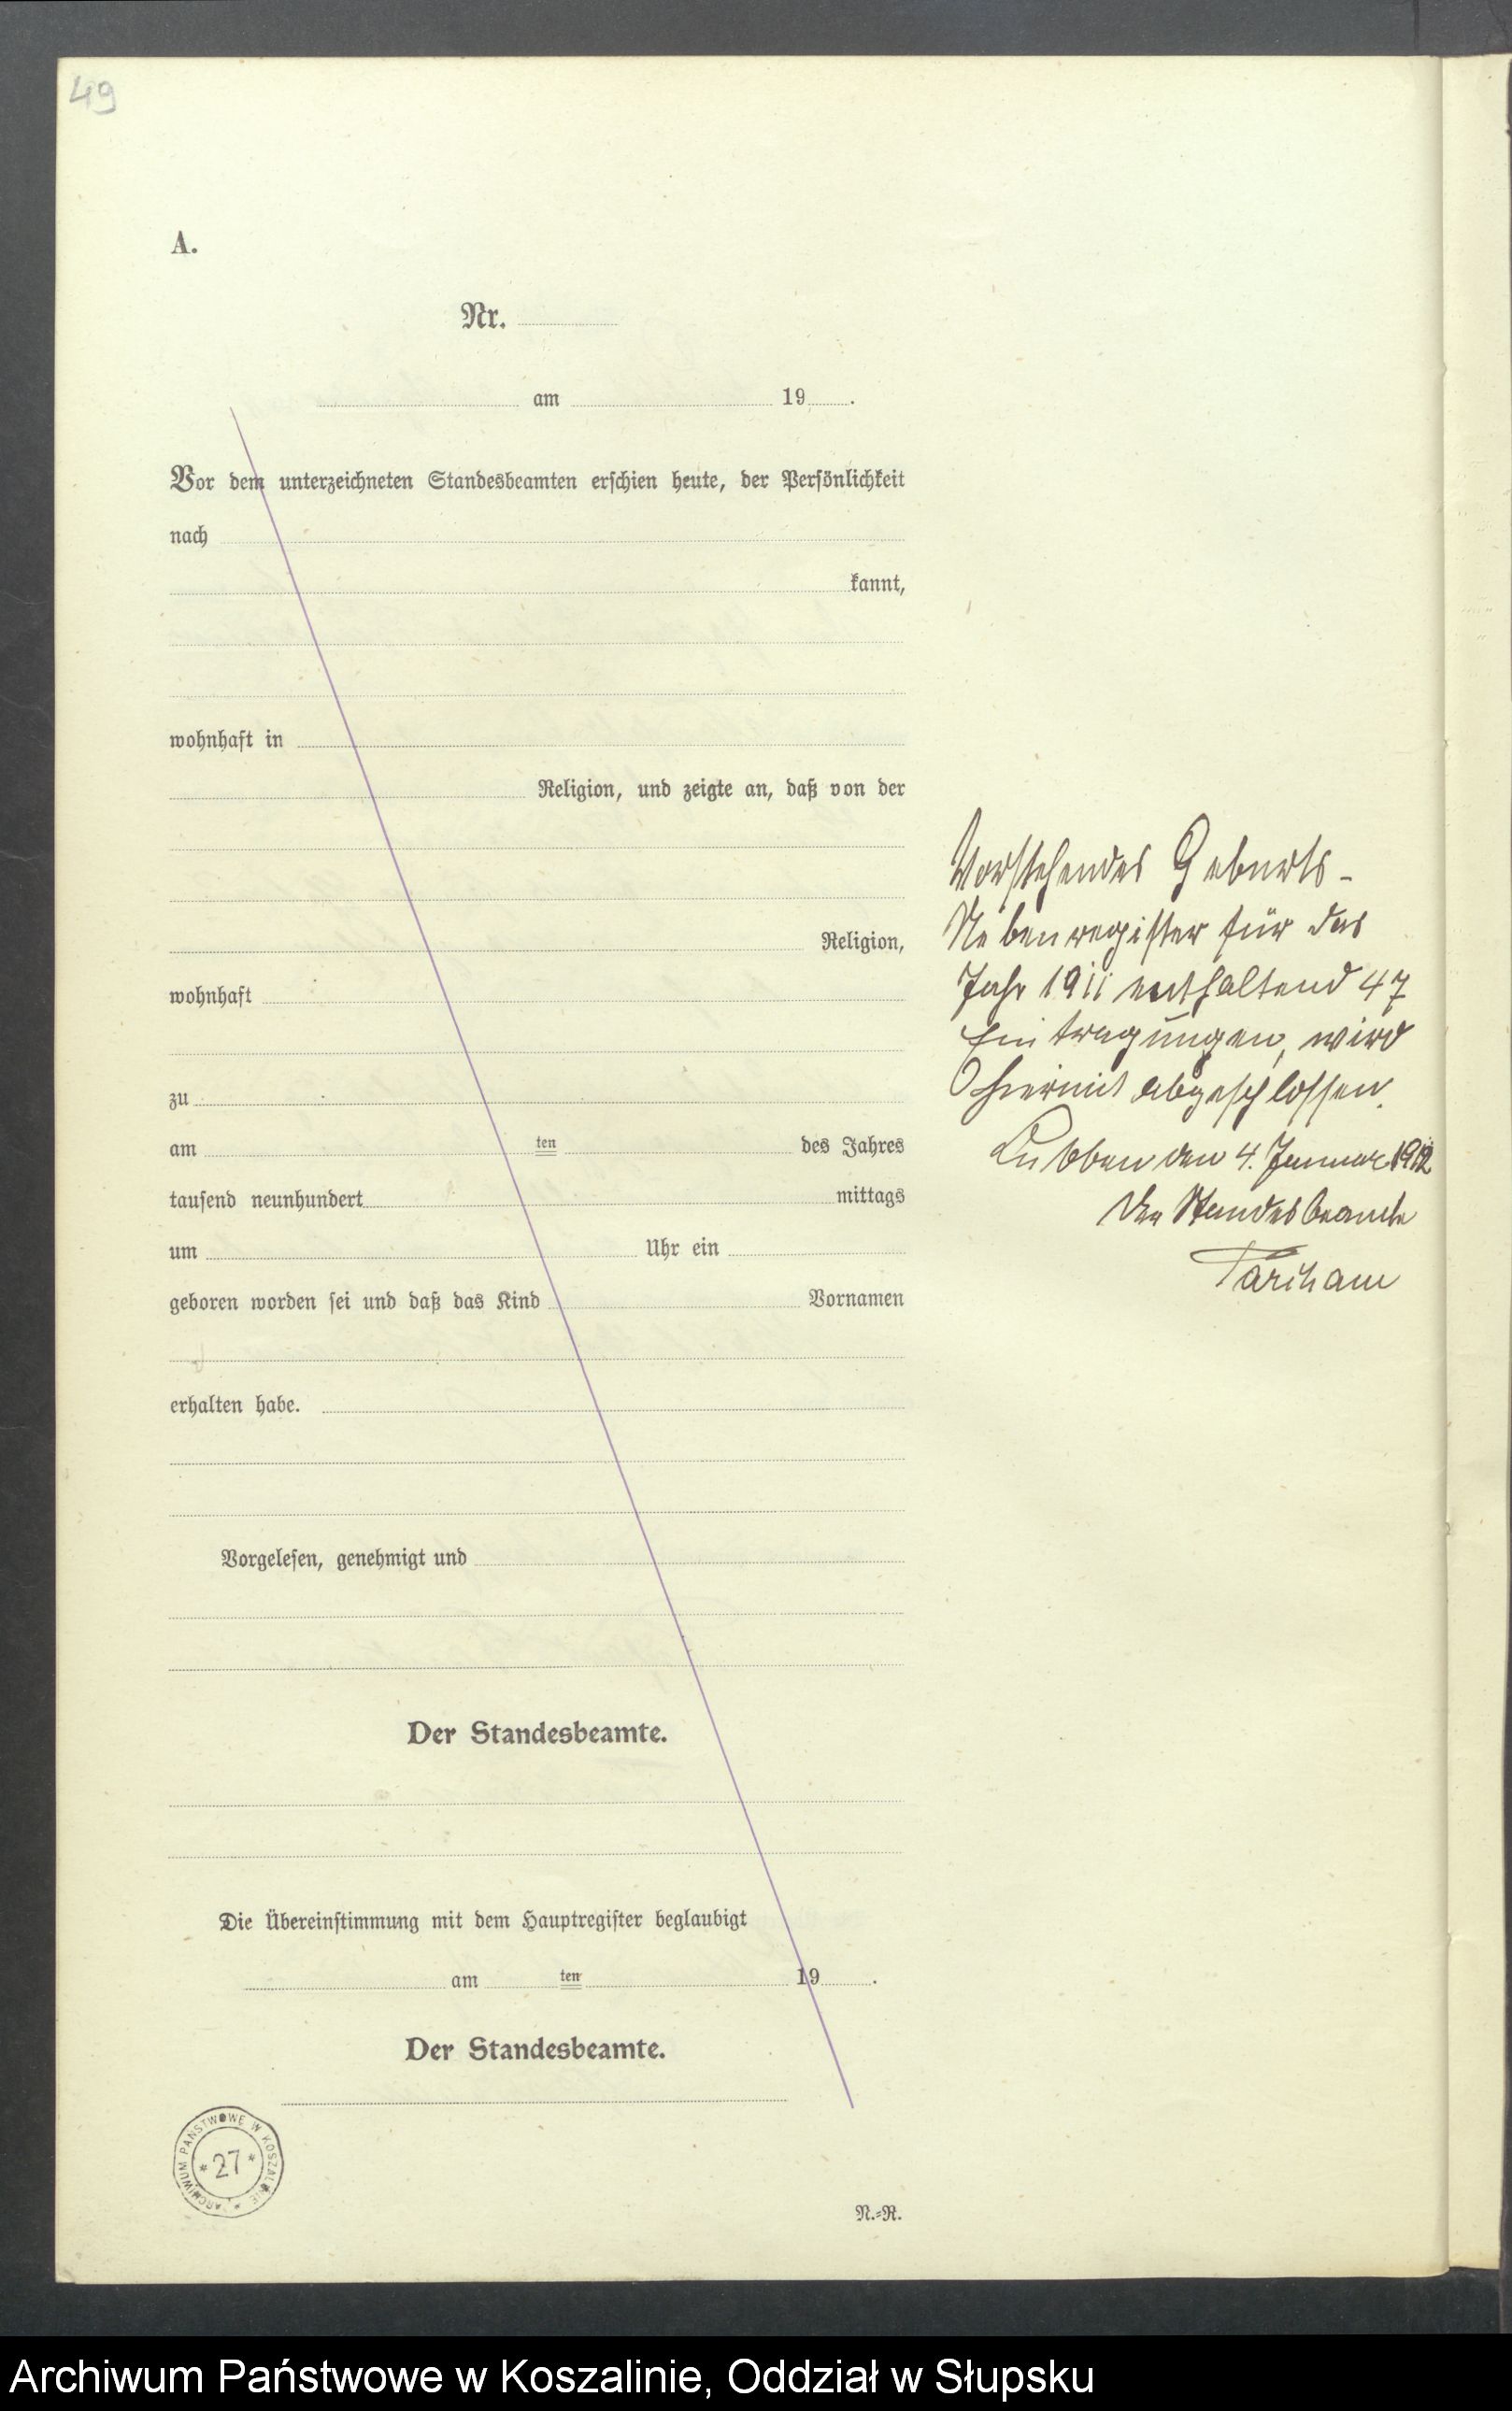 49
A.
Nr.
am 19 .
Vor dem unterzeichneten Standesbeamten erschien heute, der Persönlichkeit
nach
kannt,
wohnhaft in
Religion, und zeigte an, daß von der
Religion,
wohnhaft
zu
am ten des Jahres
tausend neunhundert mittags
um Uhr ein
geboren worden sei und daß das Kind Vornamen
erhalten habe.
Vorgelesen, genehmigt und
Der Standesbeamte.
Die Übereinstimmung mit dem Hauptregister beglaubigt
am ten 19 .
Der Standesbeamte.
ARCHIWUM PAŃSTWOWE W KOSZALINIE
* 27 *
N.=R.
Vorstehendes Geburts-
Nebenregister für das
Jahr 1911 enthaltend 47
Eintragungen, wird
hiermit abgeschlossen.
Lubben den 4. Januar 1912
Der Standesbeamte
Archiwum Państwowe w Koszalinie, Oddział w Słupsku